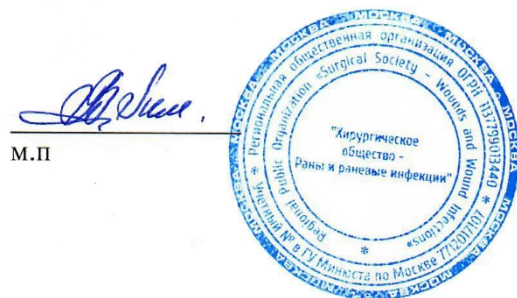 М.П
МОСКВА * МОСКВА * МОСКВА * МОСКВА * МОСКВА * МОСКВА * МОСКВА
Региональная общественная организация ОГРН 1137799013440 * Учетный № в ГУ Минюста по Москве 7712017107 *
Regional Public Organization «Surgical Society - Wounds and Wound Infections» *
"Хирургическое
общество -
Раны и раневые инфекции"